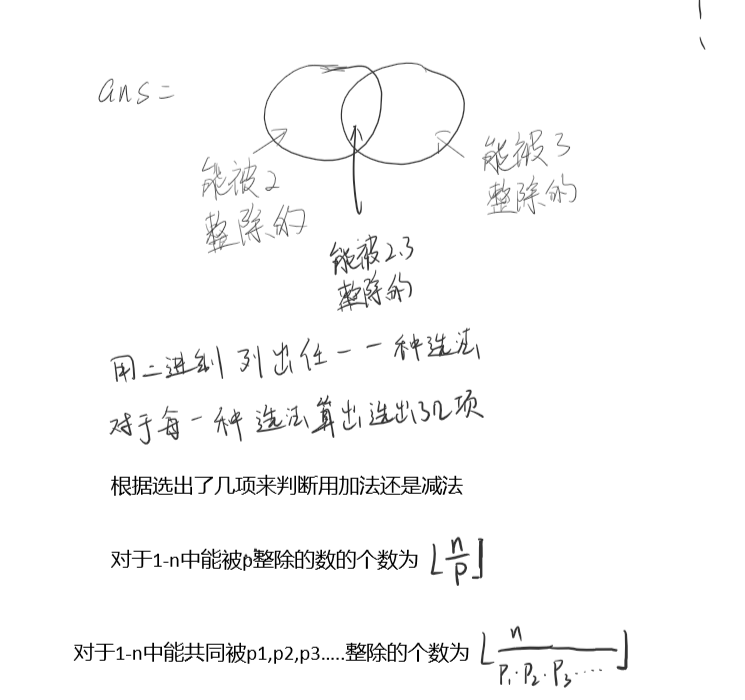 ans =
能被2
整除的
能被3
整除的
能被2.3
整除的
用二进制列出任一一种选法
对于每一种选法算出选出了几项
根据选出了几项来判断用加法还是减法
对于1-n中能被p整除的数的个数为 ⌊n/p⌋
对于1-n中能共同被p1,p2,p3.....整除的个数为 ⌊n/(P₁·P₂·P₃....)⌋